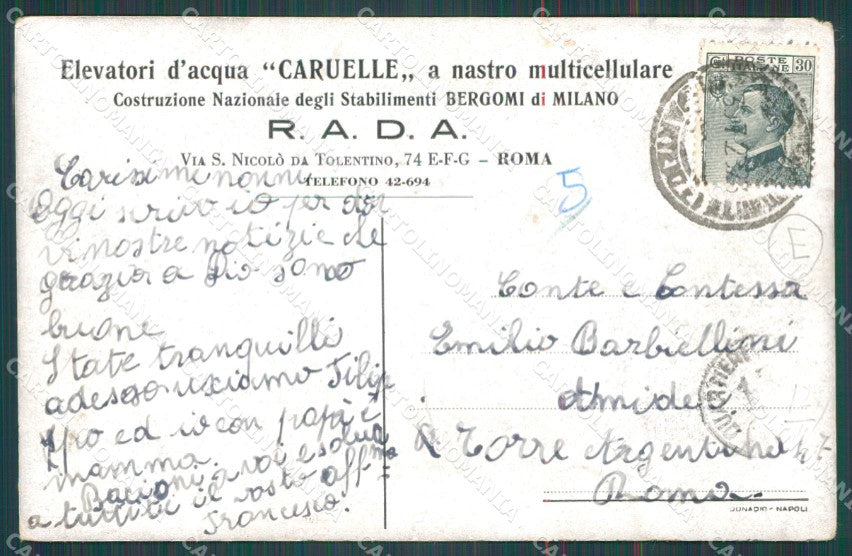 Elevatori d'acqua "CARUELLE„ a nastro multicellulare
Costruzione Nazionale degli Stabilimenti BERGOMI di MILANO
R. A. D. A.
VIA S. NICOLÒ DA TOLENTINO, 74 E-F-G – ROMA
TELEFONO 42-694
POSTE
30
5
E
Carissimi nonni
Oggi scrivo io per dar
vi nostre notizie che
grazia a Dio sono
buone
State tranquilli
adesso usciamo Filip
po ed io con papà e
mamma.
Bacioni a voi e
a tutti il vostro aff-mo
Francesco!
Conte e Contessa
Emilio Barbiellini
Amidei
Torre Argentina 47
Roma
NAPOLI